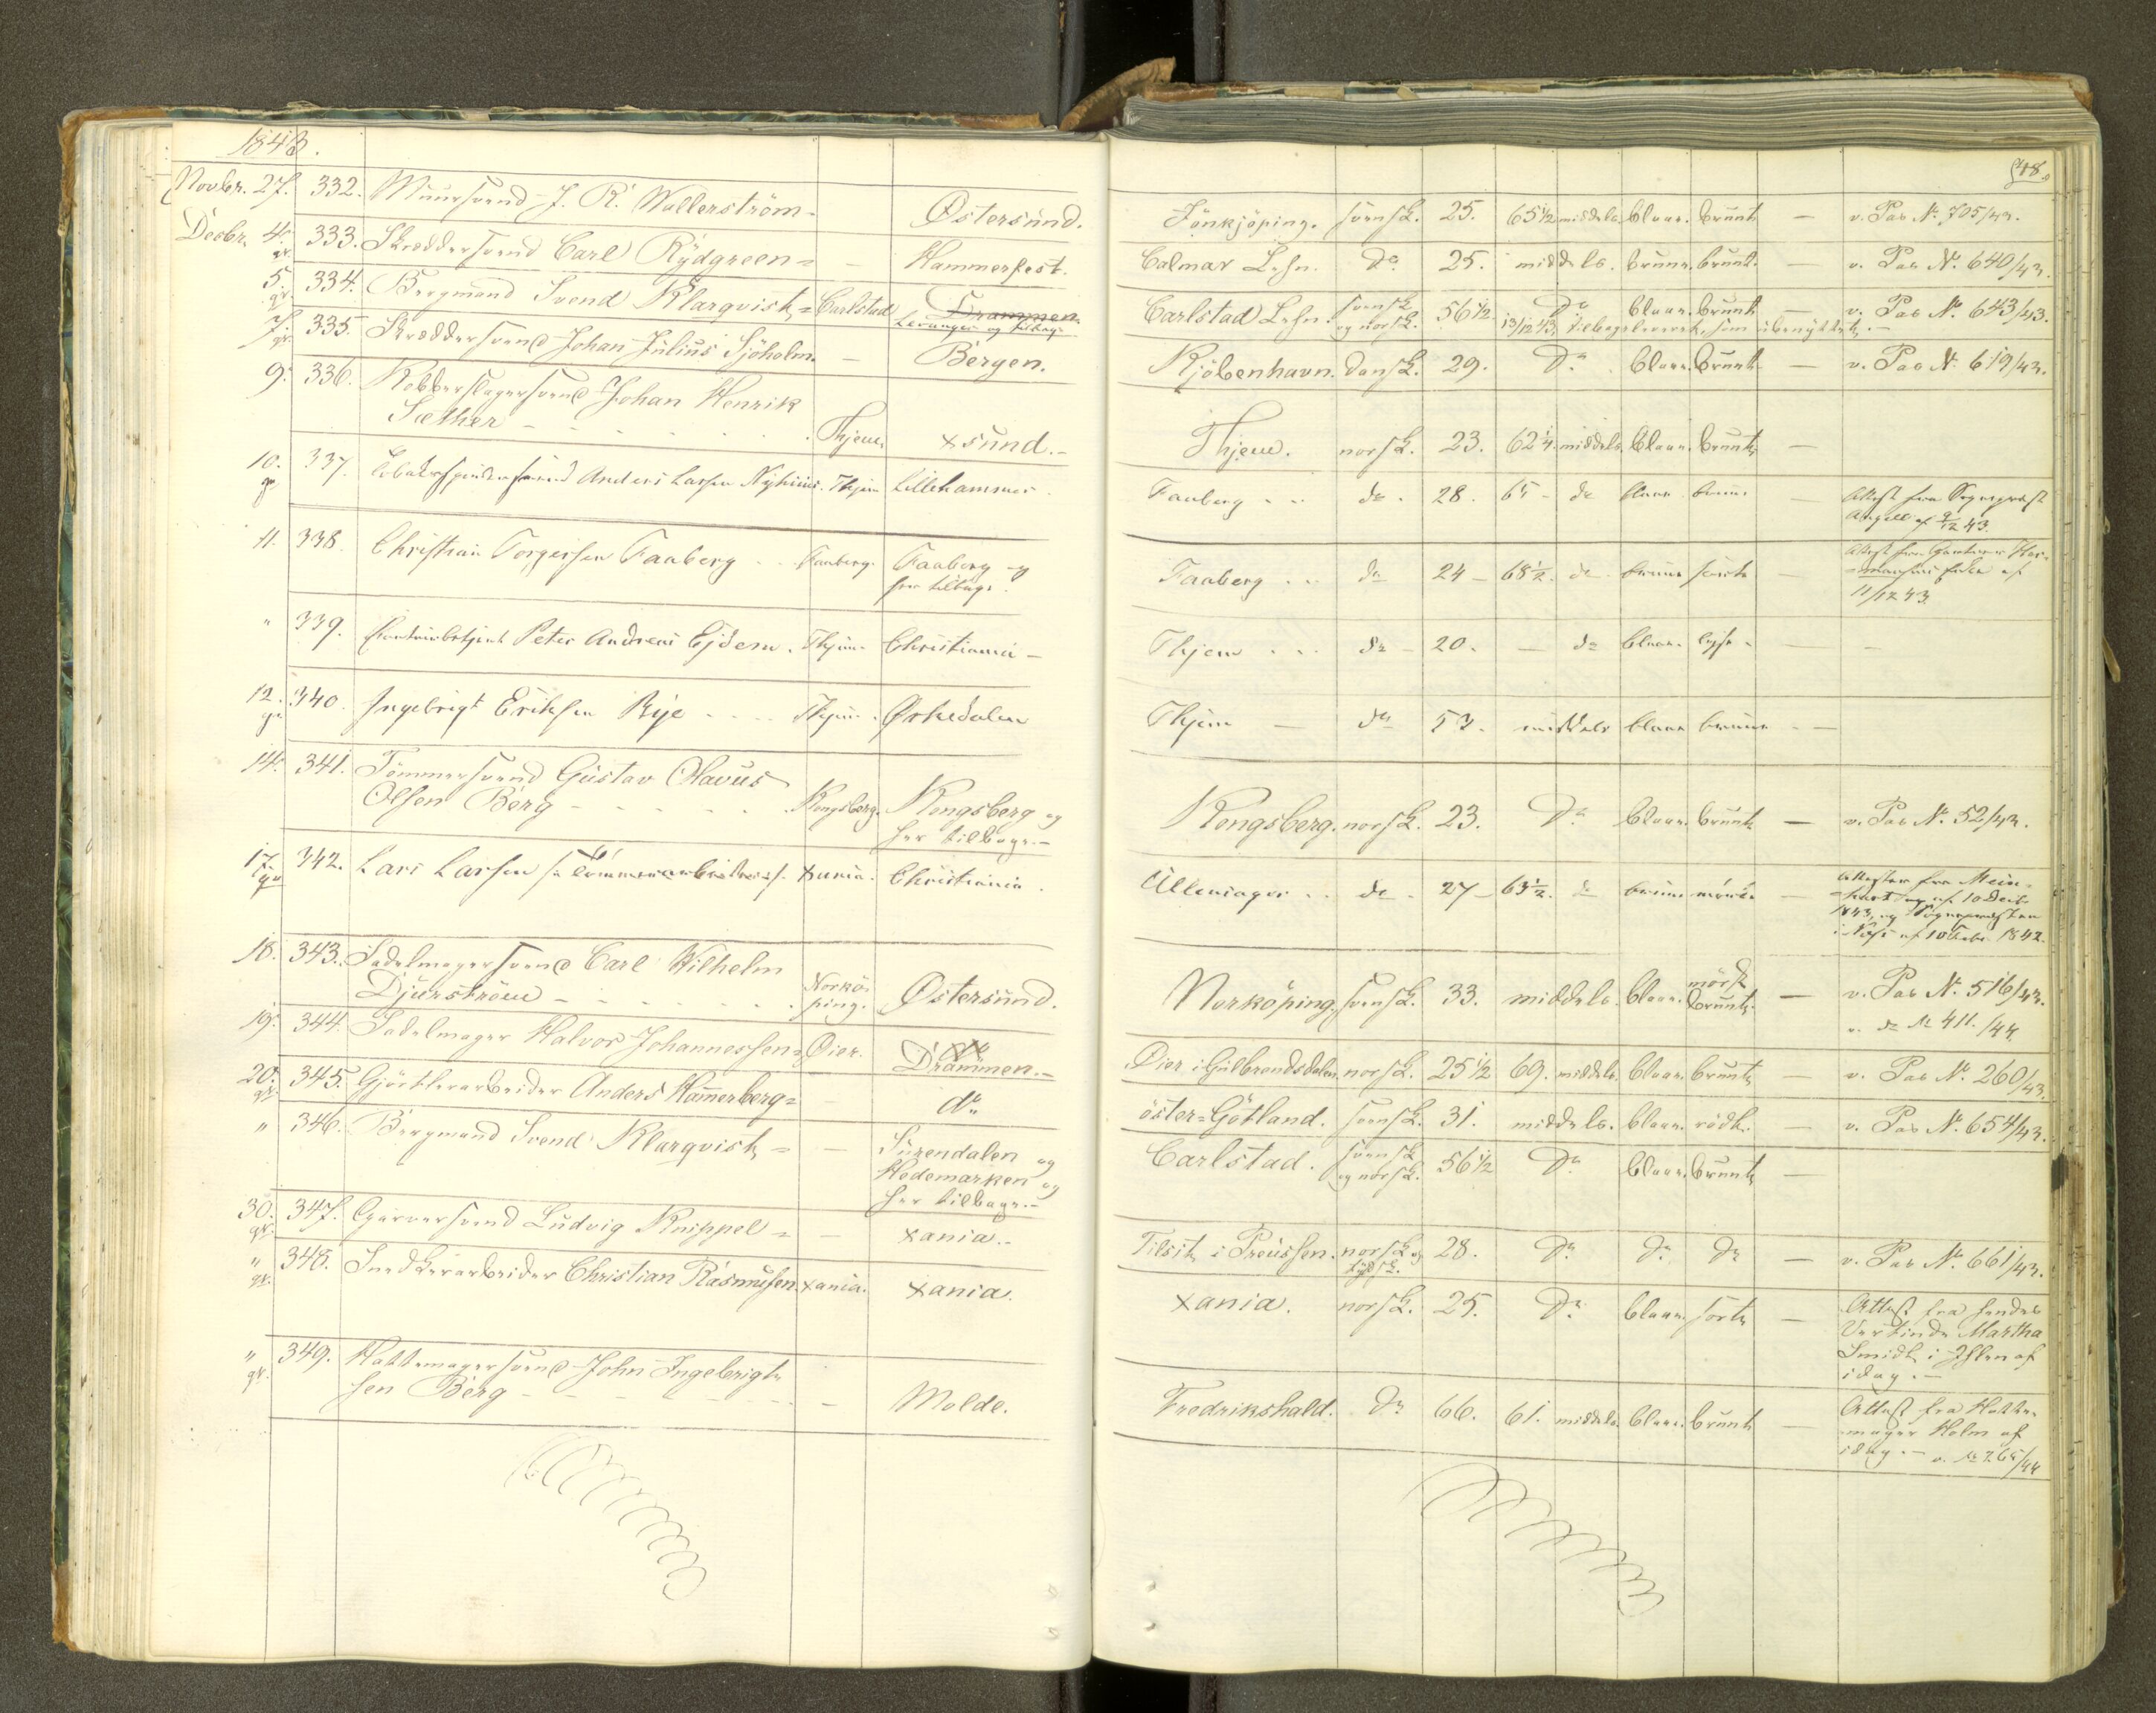 1843.
Novbr. 27. 332. Muursvend J. R. Wallerström - Østersund.
Decbr. 4. gr. 333. Skræddersvend Carl Rydgreen = - Hammerfest.
5. gr. 334. Bergmand Svend Klarqvist = Carlstad Drammen
Levanger og tilbage
7. gr. 335. Skræddersvend Johan Julius Sjöholm. - Bergen.
9. 336. Kobberslagersvend Johan Henrik
Sæther - Thjem. xsund.-
10. gr. 337. Tobaksspindersvend Anders Larsen Nyhuus. Thjem Lillehammer.
11. 338. Christian Torgersen Faaberg .. Faaberg. Faaberg og
her tilbage.
" 339. Peter Andreas Ejdem. Thjem. Christiania -
12. gr. 340. Ingebrigt Eriksen Rye .... Thjem. Ørkedalen
14. 341. Tömmersvend Gustav Olavus
Olsen Berg - Kongsberg. Kongsberg og
her tilbage.-
17. gr. 342. Lars Larsen /: Tömmerarbeider :/. xania. Christiania.
18. 343. Sadelmagersvend Carl Wilhelm
Djurström - Norkö-
ping. Østersund.
19. 344. Sadelmager Halvor Johannessen = Øier. Drammen.-
20. gr. 345. Gjörtlerarbeider Anders Hamerberg = - do
" 346. Bergmand Svend Klarqvist = - Surendalen og
Hedemarken og
her tilbage.-
30. gr. 347. Garversvend Ludvig Knippel = - xania.-
" gr. 348. Snedkerarbeider Christian Rasmussen xania. xania.
" gr. 349. Hattemagersvend John Ingebrigt-
sen Berg - - Molde.
48.
Jönkjöping. svensk. 25. 65 1/2 middels. blaae. brunt - v. Pas No. 705/43.
Calmar Lehn. do 25. middels. brune. brunt. - v. Pas No. 640/43.
Carlstad Lehn. svensk
og norsk. 56 1/2 do blaae. brunt - v. Pas No. 643/43.
13/12 43, tilbageleveret, som ubenyttet.-
Kjöbenhavn. dansk. 29. do. blaae. brunt - v. Pas No. 619/43.
Thjem. norsk. 23. 62 1/4. middels. blaae. brunt -
Faaberg .. do. 28. 65 - do blaae brune Attest fra Sogneprest
Angell af 9/12 43.
Faaberg ... do 24 - 68 1/2. do brune sorte - Attest fra
af
11/12 43.
Thjem ... do - 20. - do blaae. lyse. - -
Thjem - do 53. middels blaae brune - -
Kongsberg. norsk. 23. do blaae. brunt - v. Pas No. 52/43.
Ullensager .. do. 27 - 63 1/2. do brune mörke - Attester fra Mein-
af 10 Decbr.
1843, og Sognepresten
i Næs af 10 Febr. 1842.
Norköping. svensk. 33. middels. blaae. mörk
brunt. - v. Pas No. 516/43.
v. do No 411./44.
Øier i Gulbrandsdalen. norsk. 25 1/2 69. middels. blaae. brunt - v. Pas No. 260/43.
öster=Götland. svensk. 31. middels. blaae. rödt. - v. Pas No. 654/43.
Carlstad. svensk
og norsk. 56 1/2 do blaae. brunt -
Tilsit i Preussen. norsk og
tydsk. 28. do do do - v. Pas No. 661/43.
xania. norsk. 25. do blaae. sort - Attest fra hendes
Vertinde Martha
Smidt i Ihlen af
idag.-
Fredrikshald. do 66. 61. middels. blaae. brunt - Attest fra Hatte-
mager Holm af
idag.- v. No 265/44